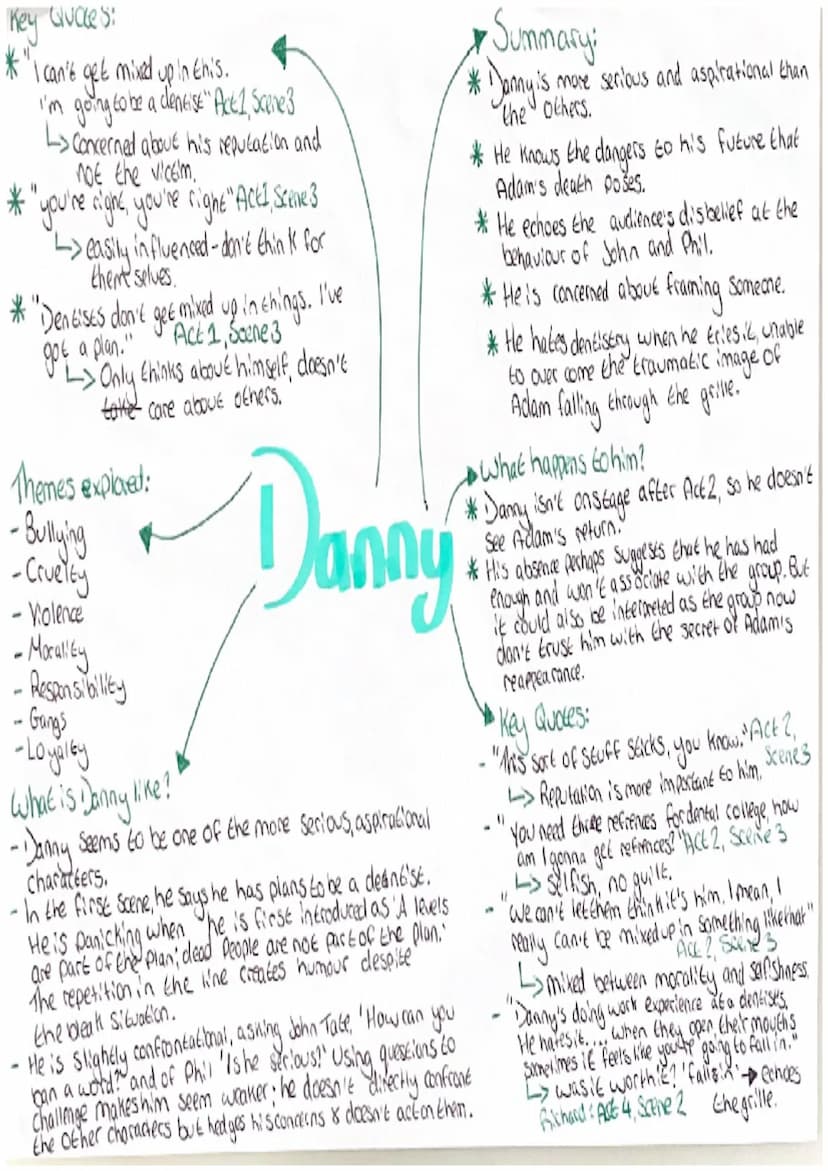 Key Quotes:
* "I can't get mixed up in this.
I'm going to be a dentist" Act 1, Scene 3
↳ Concerned about his reputation and
not the victim.
* "you're right, you're right" Act 1, Scene 3
↳ easily influenced - don't think for
themselves.
* "Dentists don't get mixed up in things. I've
got a plan." Act 1, Scene 3
↳ Only thinks about himself, doesn't
take care about others.
Summary:
* Danny is more serious and aspirational than
the others.
* He knows the dangers to his future that
Adam's death poses.
* He echoes the audience's disbelief at the
behaviour of John and Phil.
* He is concerned about framing someone.
* He hates dentistry when he tries it, unable
to over come the traumatic image of
Adam falling through the grille.
Themes explored:
- Bullying
- Cruelty
- Violence
- Morality
- Responsibility
- Gangs
- Loyalty
Danny
What happens to him?
* Danny isn't onstage after Act 2, so he doesn't
see Adam's return.
* His absence perhaps suggests that he has had
enough and won't associate with the group. But
it could also be interpreted as the group now
don't trust him with the secret of Adam's
reappearance.
What is Danny like?
- Danny seems to be one of the more serious, aspirational
characters.
- In the first scene, he says he has plans to be a deantist.
He is panicking when he is first introduced as 'A levels
are part of the Plan; dead people are not part of the plan.'
The repetition in the line creates humour despite
the bleak situation.
- He is slightly confrontational, asking John Tate, 'How can you
ban a word?' and of Phil 'Is he serious?' Using questions to
challenge makes him seem weaker; he doesn't directly confront
the other characters but hedges his concerns & doesn't act on them.
Key Quotes:
- "This sort of stuff sticks, you know." Act 2,
Scene 3
↳ Reputation is more important to him.
- "You need three refrences for dental college, how
am I gonna get refrences?" Act 2, Scene 3
↳ selfish, no guilt.
- "We can't let them think it's him, I mean, I
really can't be mixed up in something like that"
Act 2, Scene 3
↳ mixed between morality and selfishness.
- "Danny's doing work experience at a dentises.
He hates it.... when they open their mouths
sometimes it feels like you're going to fall in."
↳ was it worth it? 'falls in' → echoes
the grille.
Richard: Act 4, Scene 2